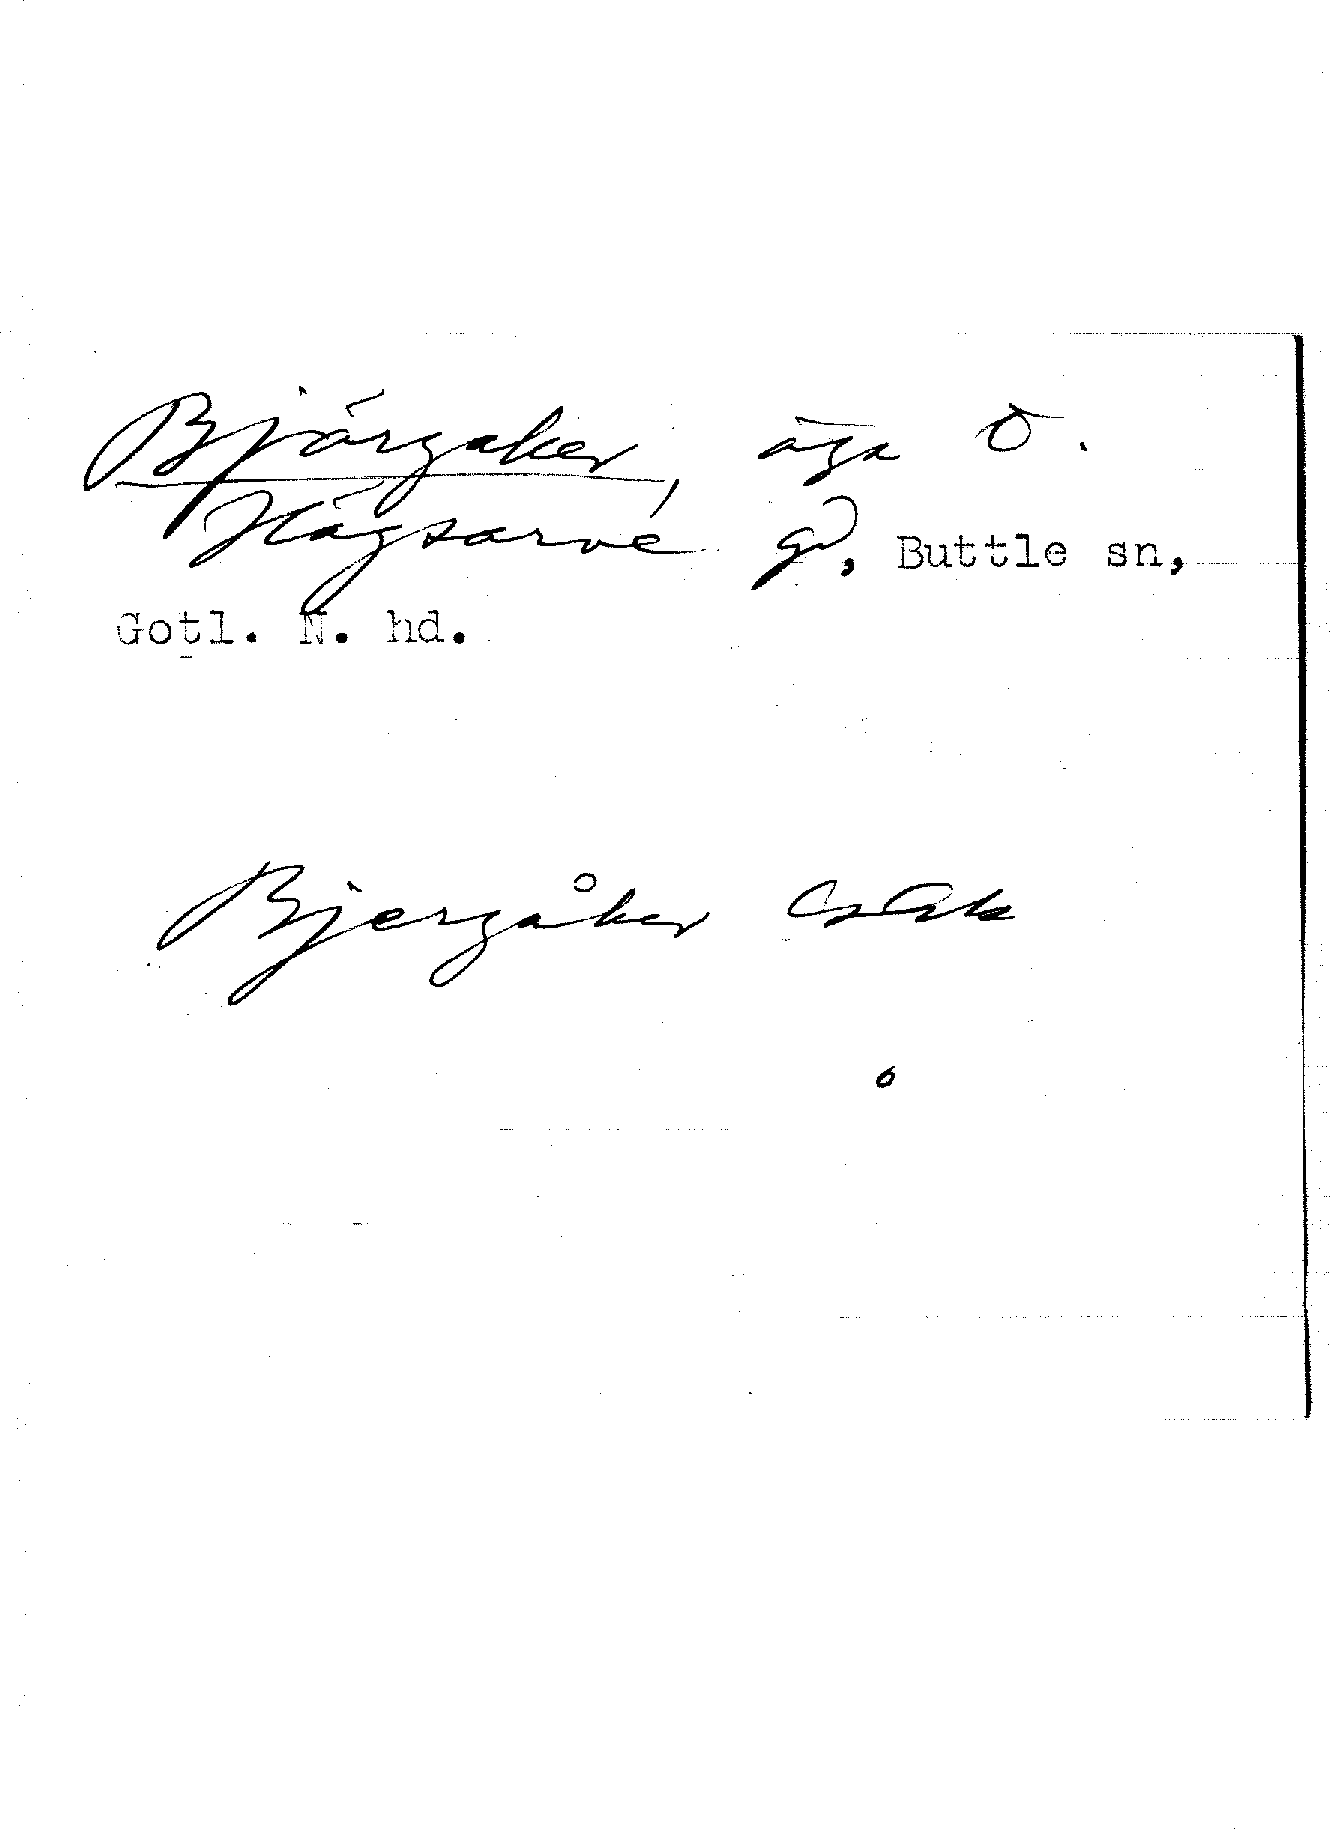 Bjärgaker, äga Ö.
Hägsarve gd, Buttle sn,
Gotl. N. hd.
Bjergåker